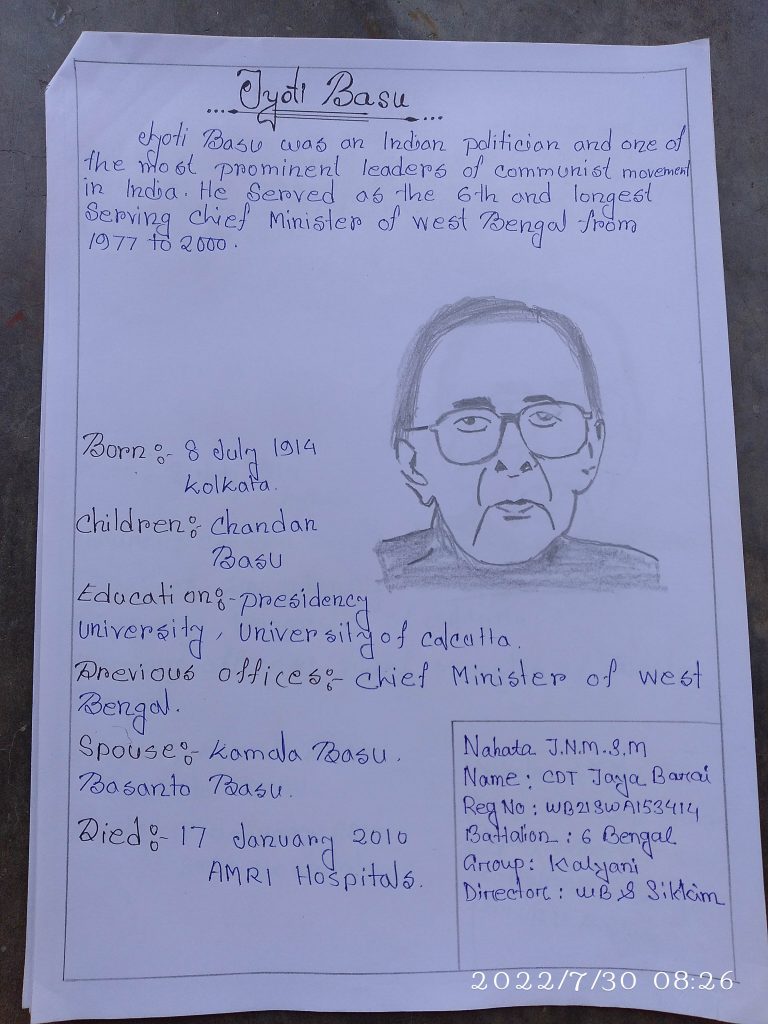 Jyoti Basu
Jyoti Basu was an Indian politician and one of
the most prominent leaders of communist movement
in India. He Served as the 6th and longest
Serving Chief Minister of west Bengal from
1977 to 2000.
Born:- 8 July 1914
Kolkata.
Children:- Chandan
Basu
Education:- presidency
university, University of calcutta.
Previous offices:- Chief Minister of west
Bengal.
Spouse:- Kamala Basu.
Basanto Basu.
Died:- 17 January 2010
AMRI Hospitals.
Nahata J.N.M.S.M
Name: CDT Jaya Barai
Reg No: WB21SWA153414
Battalion: 6 Bengal
Group: Kalyani
Director: WB & Sikkim
2022/7/30 08:26